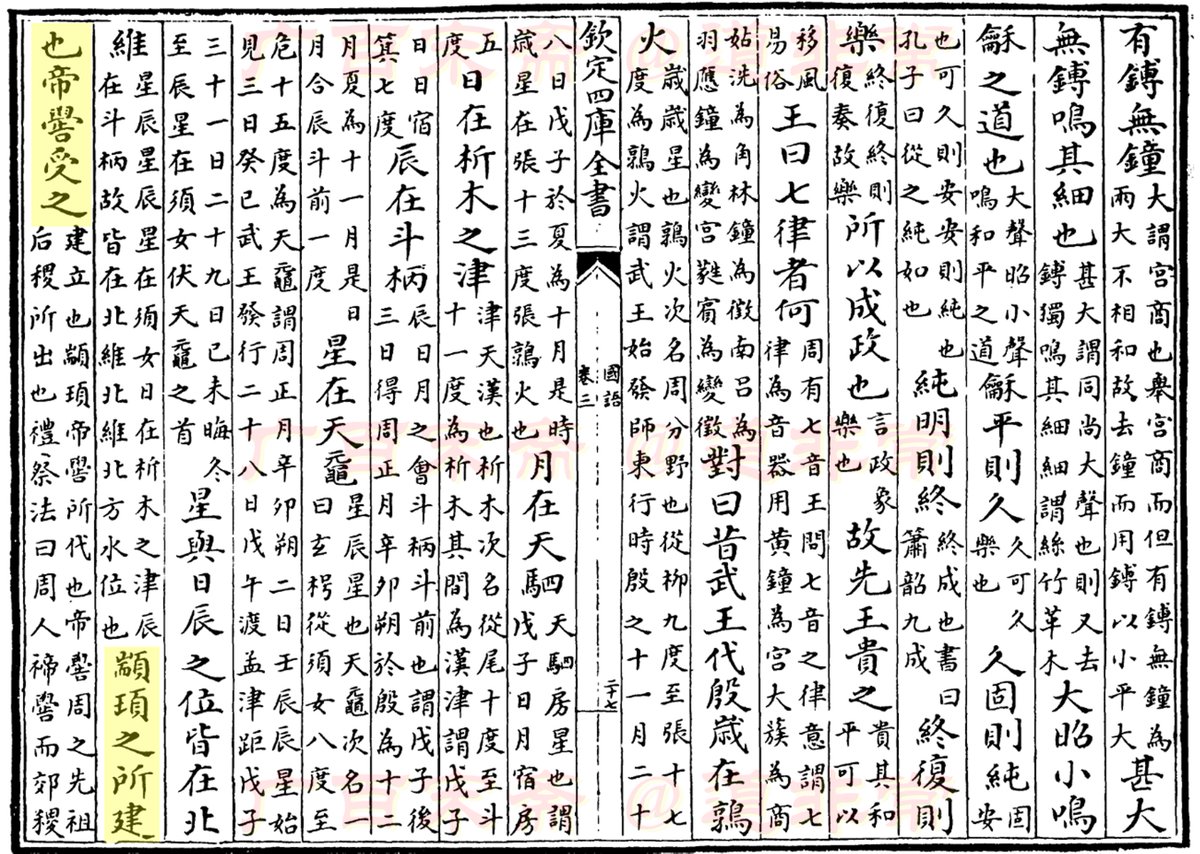 有鎛無鐘大謂宮商也舉宮商而但有鎛無鐘為兩大不相和故去鐘而用鎛以小平大甚大
無鎛鳴其細也甚大謂同尚大聲也則又去鎛獨鳴其細細謂絲竹革木大昭小鳴
龢之道也大聲昭小聲鳴和平之道龢平則久久可久樂也久固則純固安
也可久則安安則純也孔子曰從之純如也純明則終終成也書曰簫韶九成終復則
樂終復終則復奏故樂所以成政也言政象樂也故先王貴之貴其和平可以
移風易俗王曰七律者何周有七音王問七音之律意謂七律為音器用黄鐘為宮大蔟為商
姑洗為角林鐘為徵南吕為羽應鐘為變宮蕤賓為變徵對曰昔武王伐殷歳在鶉
火歳歳星也鶉火次名周分野也從柳九度至張十七度為鶉火謂武王始發師東行時殷之十一月二十
欽定四庫全書 國語 卷三 二十七
八日戊子於夏為十月是時歳星在張十三度張鶉火也月在天駟天駟房星也謂戊子日月宿房
五度日在析木之津津天漢也析木次名從尾十度至斗十一度為析木其間為漢津謂戊子
日日宿箕七度辰在斗柄辰日月之會斗柄斗前也謂戊子後三日得周正月辛卯朔於殷為十二
月夏為十一月是日月合辰斗前一度星在天黿星辰星也天黿次名一曰玄枵從須女八度至
危十五度為天黿謂周正月辛卯朔二日壬辰辰星始見三日癸巳武王發行二十八日戊午渡孟津距戊子
三十一日二十九日己未晦冬至辰星在須女伏天黿之首星與日辰之位皆在北
維星辰星辰星在須女日在析木之津辰在斗柄故皆在北維北維北方水位也顓頊之所建
也帝嚳受之建立也顓頊帝嚳所代也帝嚳周之先祖后稷所出也禮祭法曰周人禘嚳而郊稷